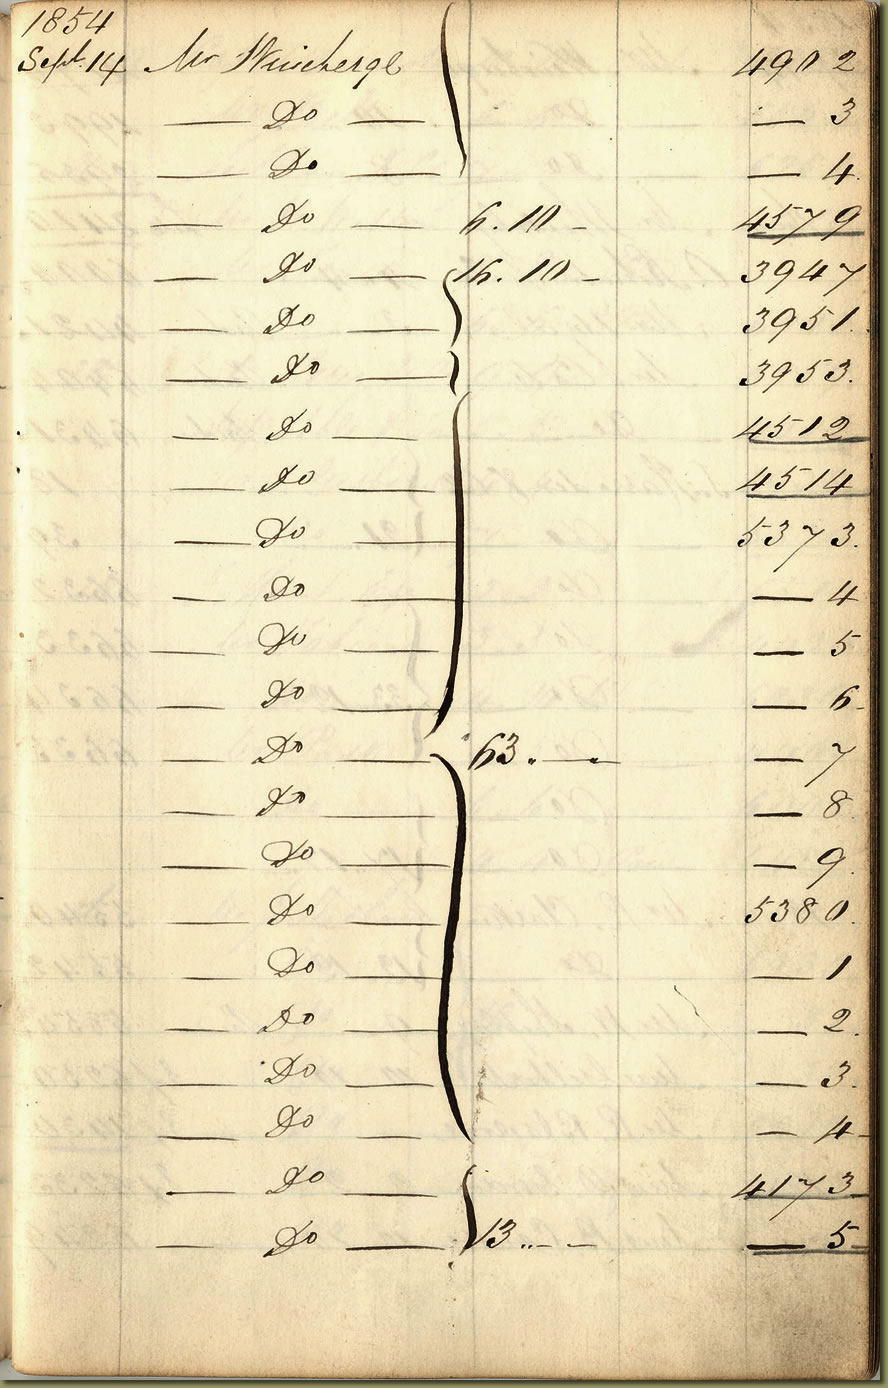 1854
Sept. 14 Mr 4902
— Do — — 3
— Do — — 4
— Do — 6.10 - 4579
— Do — 16.10 - 3947
— Do — 3951.
— Do — 3953.
— Do — 4512
— Do — 4514
— Do — 5373.
— Do — — 4
— Do — — 5
— Do — — 6
— Do — 63. — — 7
— Do — — 8
— Do — — 9
— Do — 5380.
— Do — — 1
— Do — — 2.
— Do — — 3.
— Do — — 4
— Do — 4173
— Do — 13 .. - - — 5